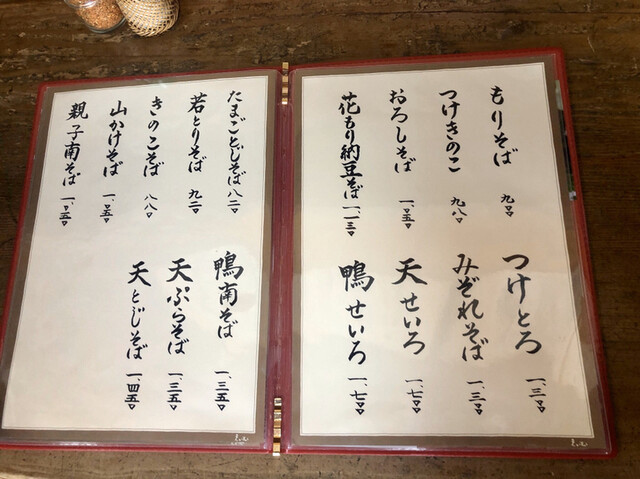 もりそば 九〇〇
つけきのこ 九八〇
おろしそば 一、〇五〇
花もり納豆そば 一、一三〇
つけとろ 一、三〇〇
みぞれそば 一、三〇〇
天せいろ 一、七〇〇
鴨せいろ 一、七〇〇
たまごとじそば 八二〇
若とりそば 九二〇
きのこそば 八八〇
山かけそば 一、〇五〇
親子南そば 一、〇五〇
鴨南そば 一、三五〇
天ぷらそば 一、三五〇
天とじそば 一、四五〇